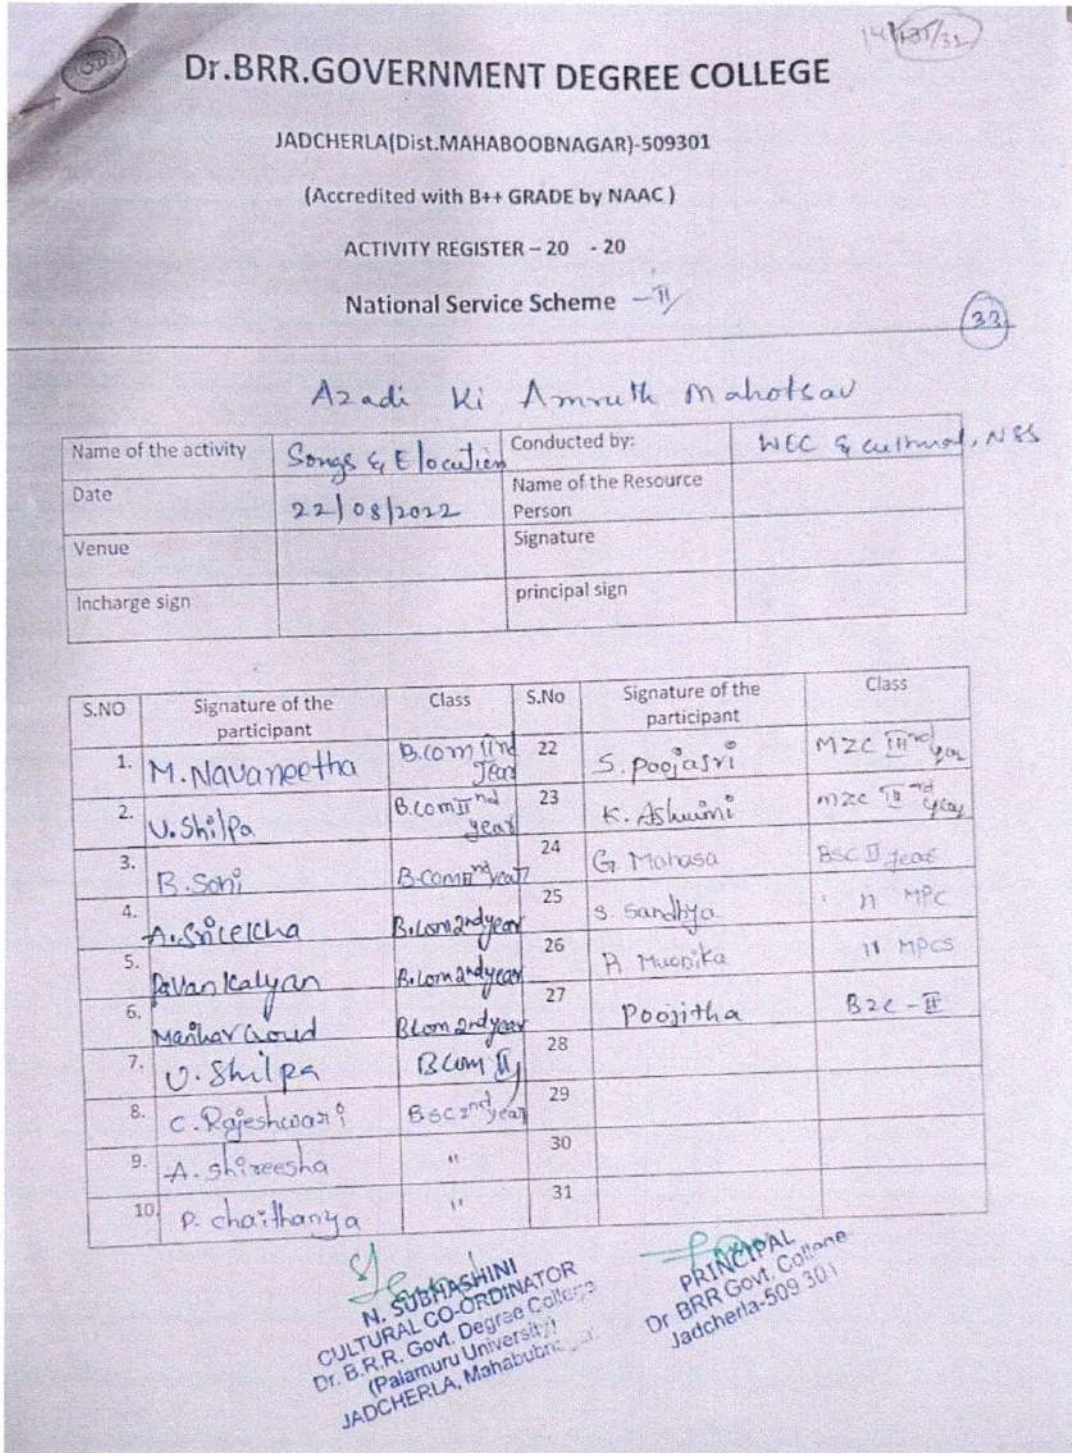 14
Dr.BRR.GOVERNMENT DEGREE COLLEGE
JADCHERLA(Dist.MAHABOOBNAGAR)-509301
(Accredited with B++ GRADE by NAAC )
ACTIVITY REGISTER – 20 - 20
National Service Scheme - II
33
Azadi Ki Amruth Mahotsav
Name of the activity Songs & Elocution Conducted by: WEC & cultural, NSS
Date 22/08/2022 Name of the Resource Person
Venue Signature
Incharge sign principal sign
S.NO Signature of the participant Class S.No Signature of the participant Class
1. M. Navaneetha B.com IInd year 22 S. poojasri MZC IIIrd year
2. V. Shilpa B.com IInd year 23 K. Ashwini mzc year
3. B. Soni B.com IInd year 24 G Mahasa BSC II year
4. A. Srilekha B.com 2nd year 25 S. Sandhya " MPC
5. Pavan Kalyan B.com 2nd year 26 P. " MPCS
6. Manhar Goud B.com 2nd year 27 Poojitha BZC - II
7. U. Shilpa BCom II 28
8. C. Rajeshwari BSC 2nd year 29
9. A. shireesha " 30
10. P. chaithanya " 31
N. SUBHASHINI
CULTURAL CO-ORDINATOR
Dr. B.R.R. Govt. Degree College
(Palamuru University)
JADCHERLA,
PRINCIPAL
Dr BRR Govt. College
Jadcherla-509 301